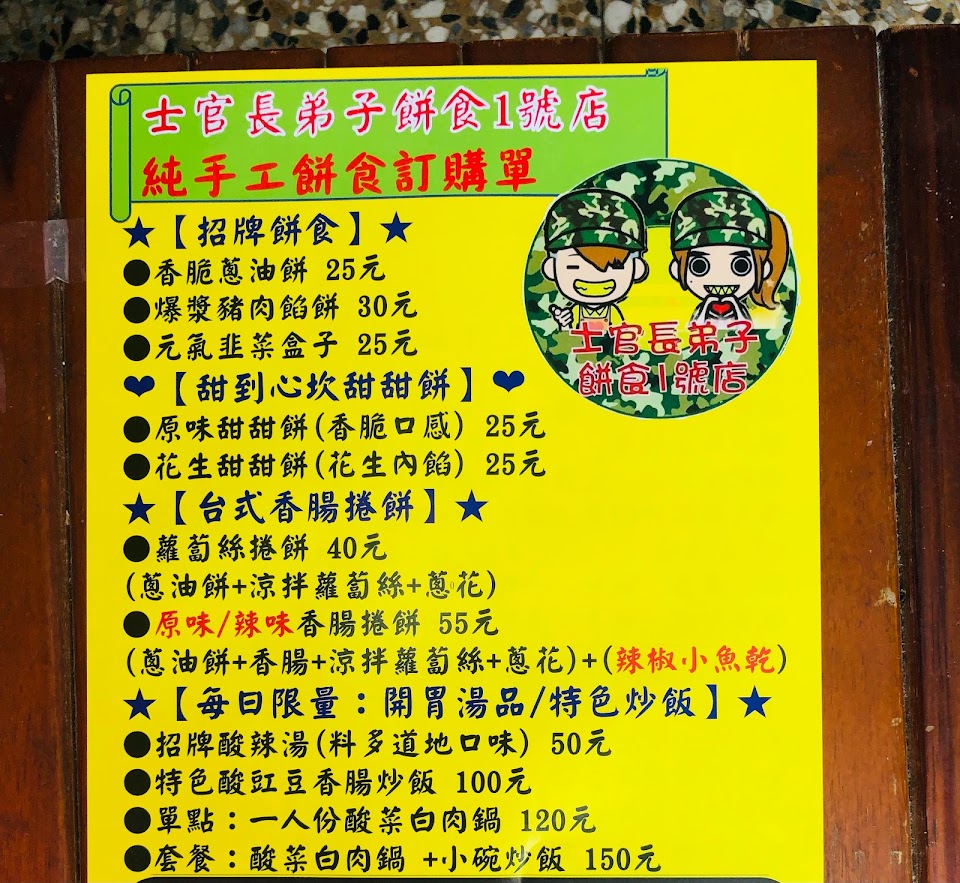 士官長弟子餅食1號店
純手工餅食訂購單
★【招牌餅食】★
●香脆蔥油餅 25元
●爆漿豬肉餡餅 30元
●元氣韭菜盒子 25元
❤【甜到心坎甜甜餅】❤
●原味甜甜餅(香脆口感) 25元
●花生甜甜餅(花生內餡) 25元
★【台式香腸捲餅】★
●蘿蔔絲捲餅 40元
(蔥油餅+涼拌蘿蔔絲+蔥花)
●原味/辣味香腸捲餅 55元
(蔥油餅+香腸+涼拌蘿蔔絲+蔥花)+(辣椒小魚乾)
★【每日限量：開胃湯品/特色炒飯】★
●招牌酸辣湯(料多道地口味) 50元
●特色酸豇豆香腸炒飯 100元
●單點：一人份酸菜白肉鍋 120元
●套餐：酸菜白肉鍋 +小碗炒飯 150元
士官長弟子
餅食1號店